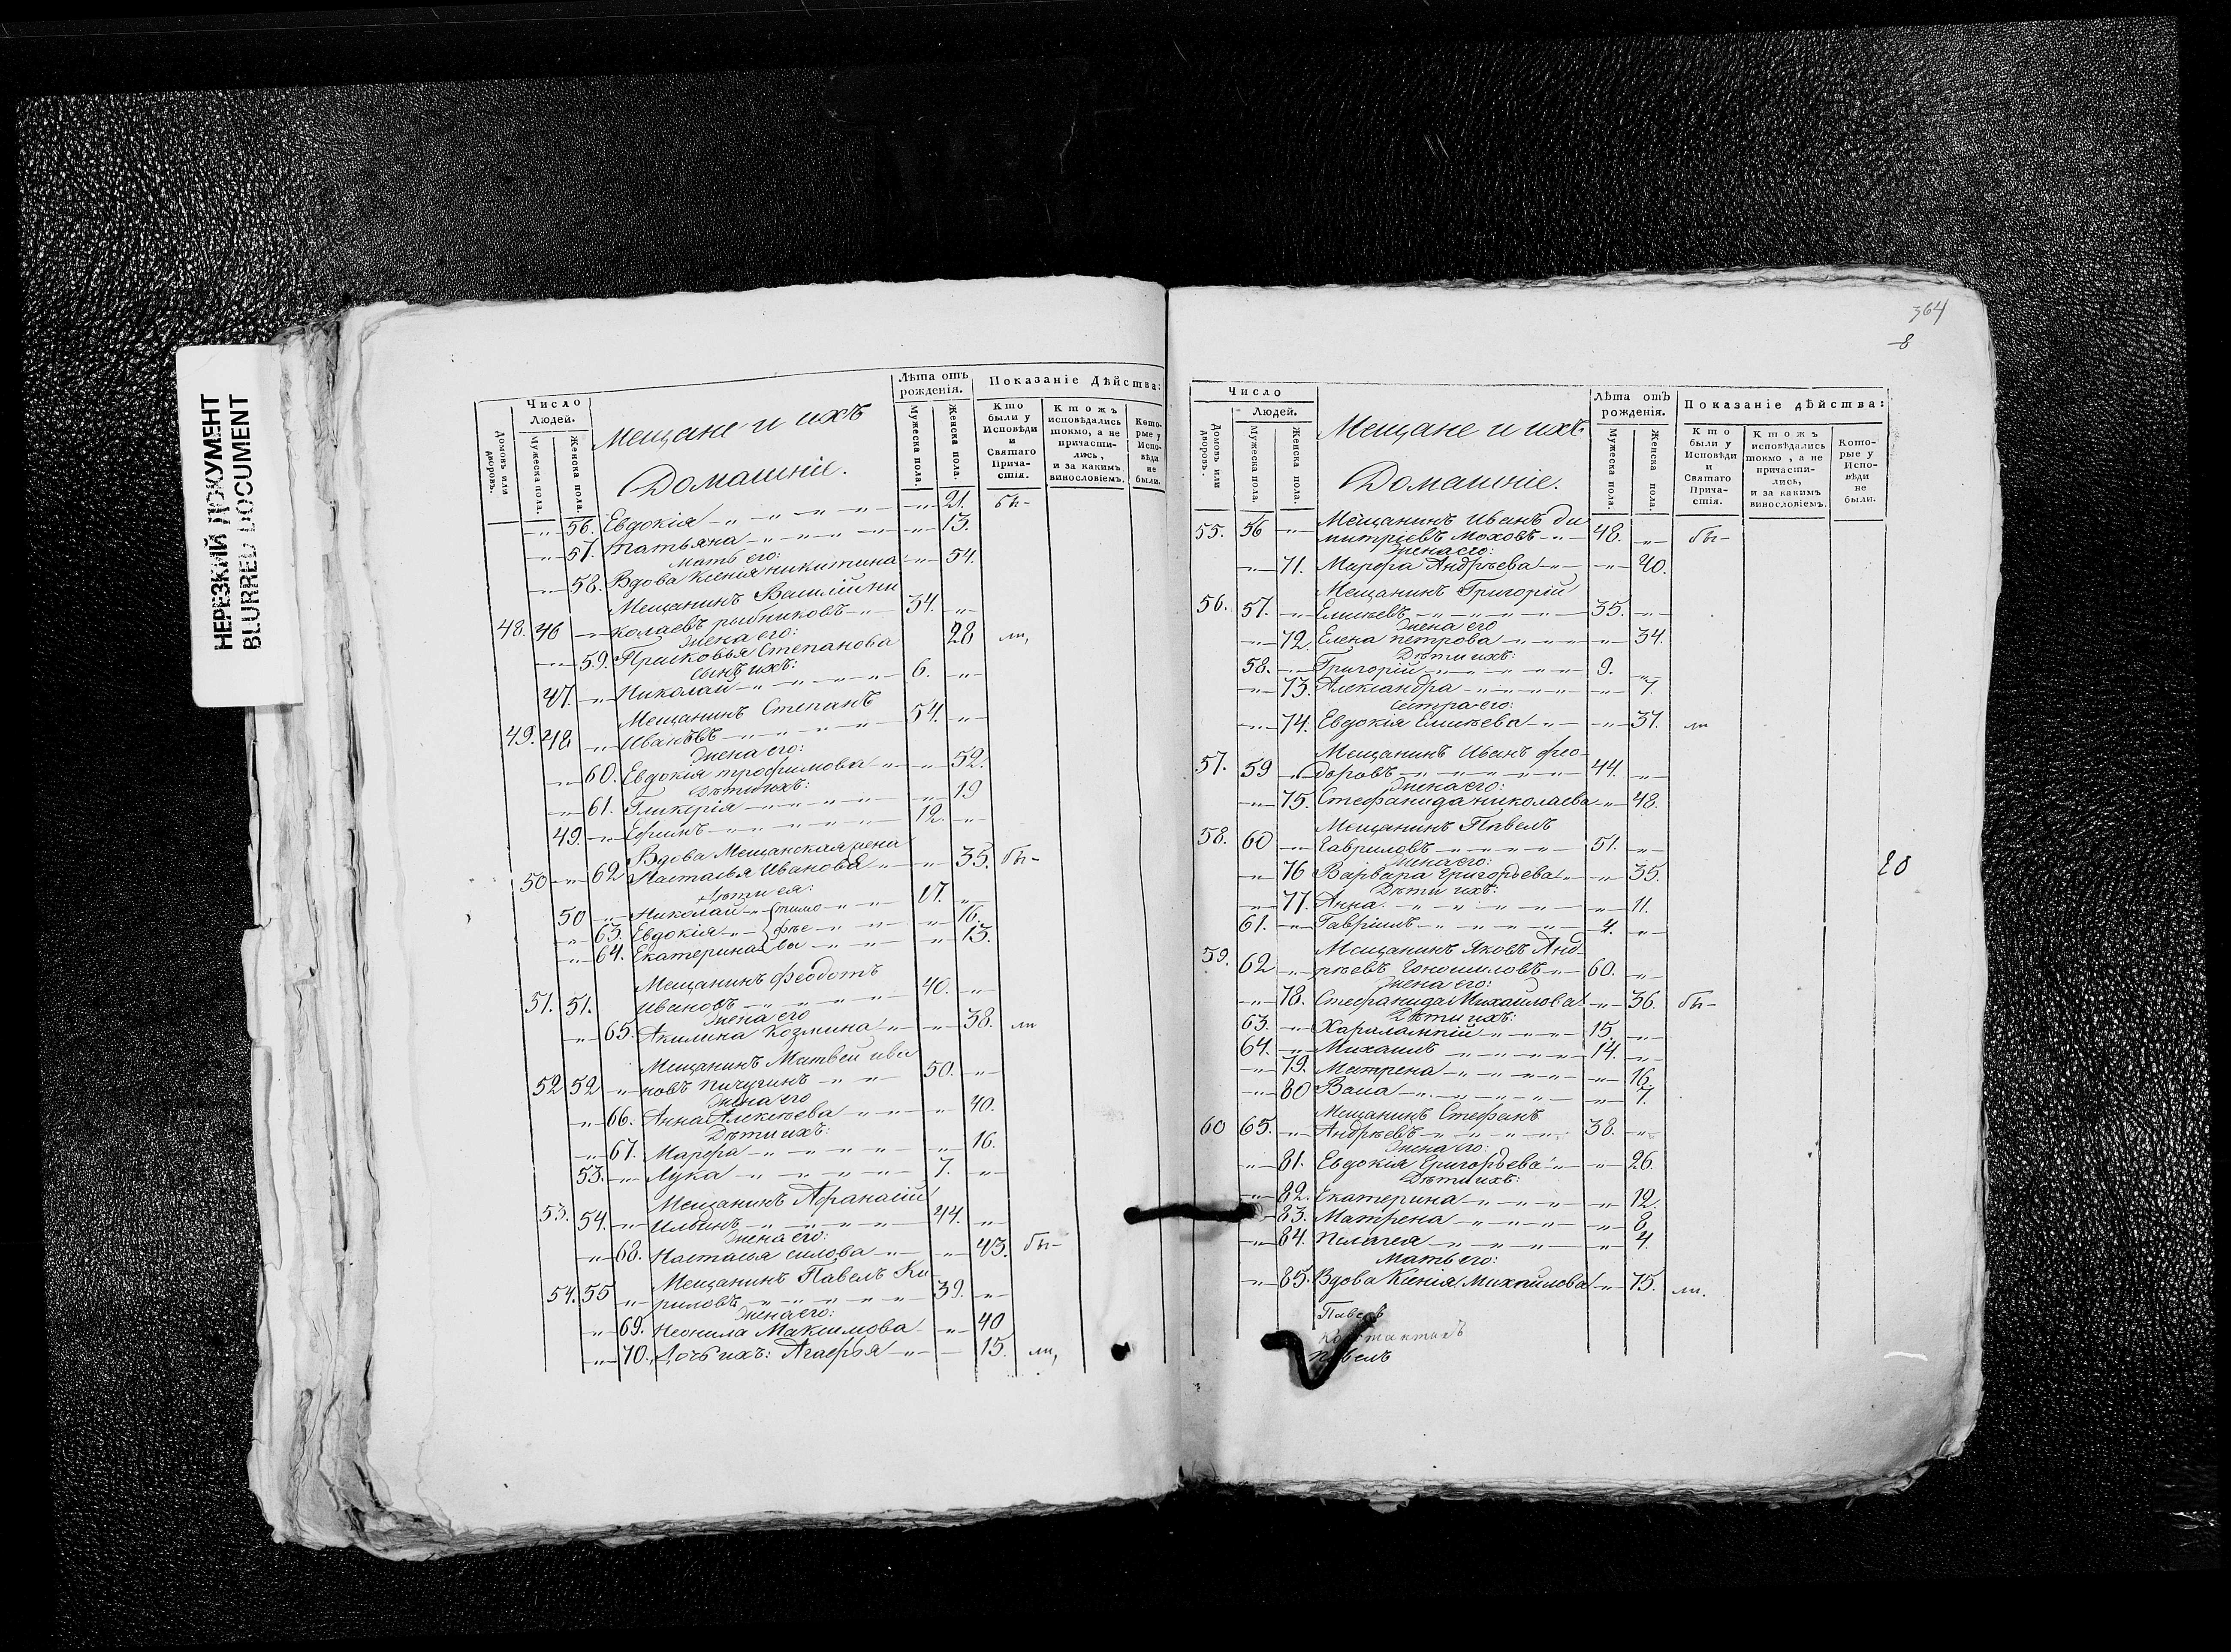 НЕРЕЗКИЙ ДОКУМЕНТ
BLURRED DOCUMENT
Число
Людей.
Домовъ или дворовъ.
Мужеска пола.
Женска пола.
Мещане и ихъ
Домашніе.
Лѣта отъ рожденія.
Мужеска пола.
Женска пола.
Показаніе Дѣйства:
Кто были у Исповѣди и Святаго Причастія.
Ктожъ исповѣдались токмо, а не причастились, и за какимъ винословіемъ.
Которые у Исповѣди не были.
56. Евдокія 21. бы-
57. Татьяна 13.
мать его:
58. Вдова Ксенія никитина 54.
Мещанинъ Василій ни
48. 46 колаевъ рыбниковъ 34.
жена его:
59. Прасковья Степанова 28 ли,
сынъ ихъ:
47. Николай 6.
Мещанинъ Степанъ
49. 48 Ивановъ 54.
жена его:
60. Евдокія трофимова 52.
Дѣти ихъ:
61. Гликерія 19
49. Ефимъ 12.
Вдова Мещанская жена
50 62 Настасья Иванова 35. бы-
дѣти ея:
50 Николай тимо 17.
63. Евдокія фѣе 16.
64. Екатерина вы 13.
Мещанинъ Феодотъ
51. 51. Ивановъ 40.
жена его
65. Акилина Козмина 38. ли
Мещанинъ Матвей ива
52 52 новъ пичугинъ 50.
жена его
66. Анна Алексѣева 40.
Дѣти ихъ:
67. Марфа 16.
53. Лука 7.
Мещанинъ Афанасій
53. 54. Ильинъ 44.
жена его:
68. Настасья силова 43. бы-
Мещанинъ Павелъ Ки
54. 55 риловъ 39.
жена его:
69. Неонила Максимова 40
70. Дочь ихъ: Агафья 15. ли,
364
8
Число
Людей.
Домовъ или дворовъ.
Мужеска пола.
Женска пола.
Мещане и ихъ
Домашніе.
Лѣта отъ рожденія.
Мужеска пола.
Женска пола.
Показаніе дѣйства:
Кто были у Исповѣди и Святаго Причастія.
Ктожъ исповѣдались токмо, а не причастились, и за какимъ винословіемъ.
Которые у Исповѣди не были.
Мещанинъ Иванъ ди
55. 56 митріевъ Моховъ 48. бы-
жена его:
71. Марфа Андрѣева 40.
Мещанинъ Григорій
56. 57. Елисѣевъ 35.
жена его
72. Елена петрова 34.
Дѣти ихъ:
58. Григорій 9.
73. Александра 7.
сестра его:
74. Евдокія Елисѣева 37. ли
Мещанинъ Иванъ фео-
57. 59 доровъ 44.
жена его:
75. Стефанида николаева 48.
Мещанинъ Павелъ
58. 60 Гавриловъ 51.
жена его:
76 Варвара григорьева 35.
Дѣти ихъ:
77. Анна 11.
61. Гавріилъ 4.
20
Мещанинъ Яковъ Анд
59. 62 рѣевъ 60.
жена его:
78. Стефанида Михайлова 36. бы-
Дѣти ихъ:
63. Харалампій 15.
64. Михаилъ 14.
79. Матрена 16.
80 Васса 7.
Мещанинъ Стефанъ
60 65. Андрѣевъ 38.
жена его:
81. Евдокія григорьева 26.
Дѣти ихъ:
82. Екатерина 12.
83. Матрена 8.
84. Пелагея 4.
Мать его:
85. Вдова Ксенія Михайлова 75. ли.
Павелъ
Константинъ
Павелъ